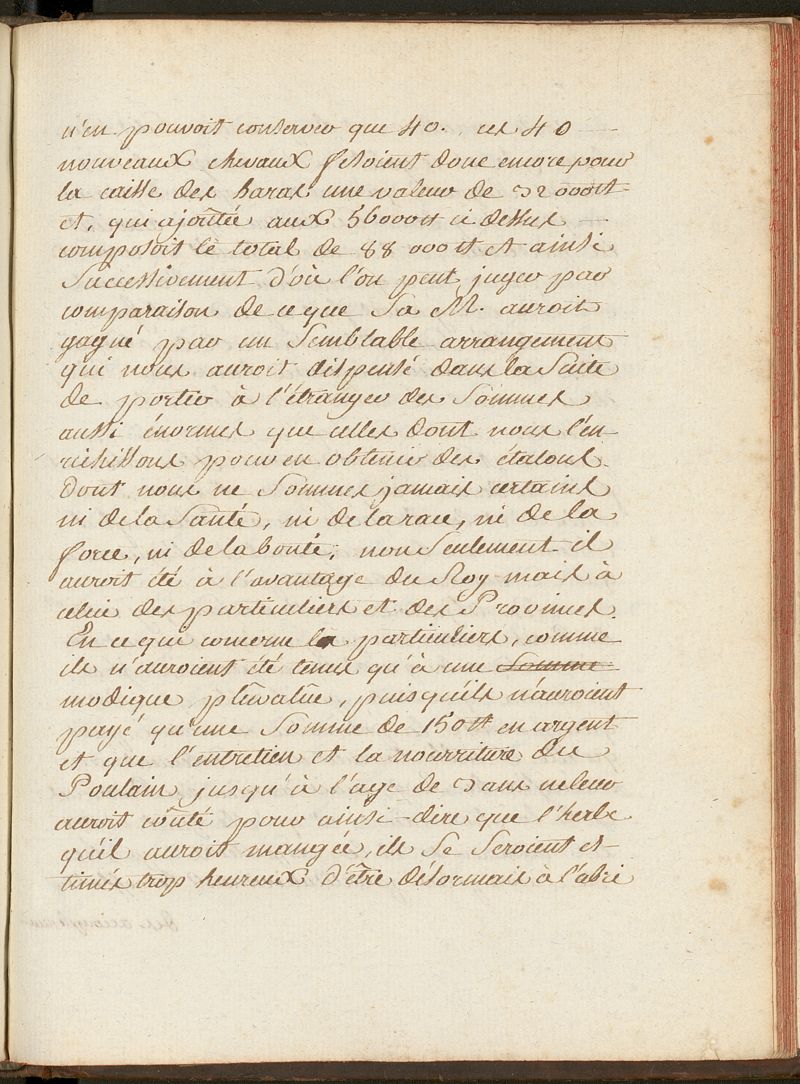 n'en pouvoit conserver que 40. ces 40
nouveaux chevaux fesoient donc encore pour
la caisse des haras une valeur de 32000tt
et, qui ajôutée aux 56000tt ci dessus
composoit le total de 88000tt et ainsi
Successivement d'où l'on peut juger par
comparaison de ce que Sa M. auroit
gagné par un Semblable arrangement
qui nous auroit dispensé dans la Suite
de porter à l'étranger des Sommes
aussi énormes que celles dont nous l'en
richissons pour en obtenir des étalons.
dont nous ne Sommes jamais certains
ni de la Santé, ni de la race, ni de la
force, ni de la bonté; non Seulement il
auroit été à l'avantage du Roy mais à
celui des particuliers et des Provinces.
En ce qui concerne les particuliers, comme
ils n'auroient été tenus qu'à une Somme
modique plûvalûe, puisqu'ils n'auroient
payé qu'une Somme de 150tt en argent
et que l'entretien et la nourriture du
Poulain jusqu'à l'age de 3 ans ne leur
auroit côuté pour ainsi-dire que l'herbe
qu'il auroit mangée, ils Se Seroient es-
timés trop heureux d'être désormais à l'abri